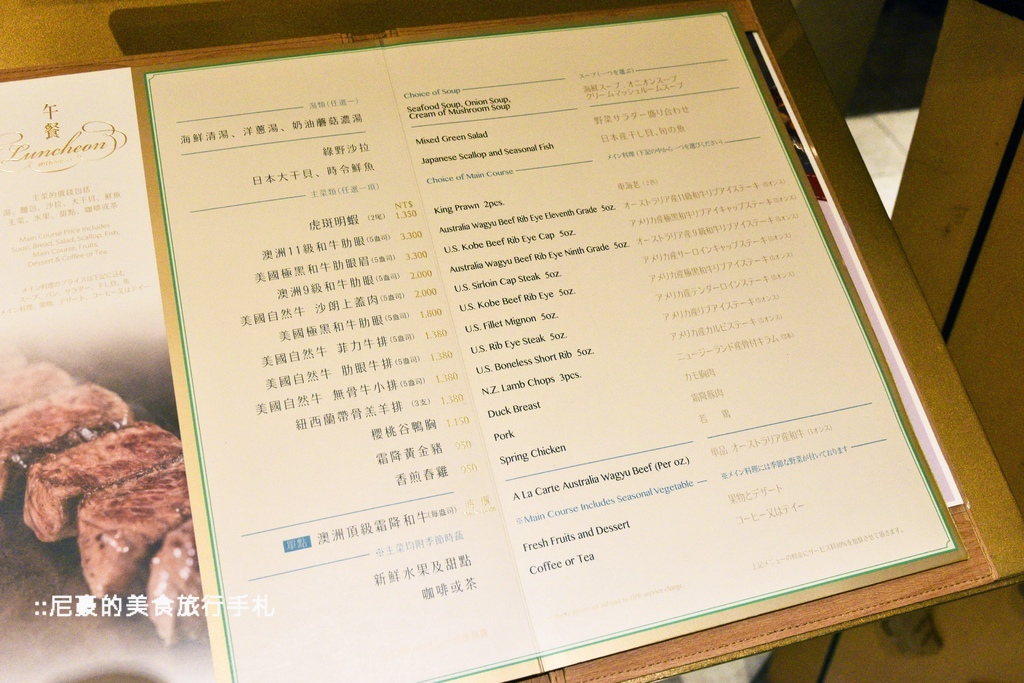 午餐
Luncheon
主菜的價錢包括
湯、麵包、沙拉、大干貝、鮮魚
主菜、水果、甜點、咖啡或茶
Main Course Price Includes
Soup, Bread, Salad, Scallop, Fish,
Main Course, Fruits,
Dessert & Coffee or Tea
湯類(任選一)
海鮮清湯、洋蔥湯、奶油蘑菇濃湯
綠野沙拉
日本大干貝、時令鮮魚
主菜類(任選一項)
NT$
虎斑明蝦 (2尾) 1,350
澳洲11級和牛肋眼(5盎司) 3,300
美國極黑和牛肋眼眉(5盎司) 3,300
澳洲9級和牛肋眼(5盎司) 2,000
美國自然牛 沙朗上蓋肉(5盎司) 2,000
美國極黑和牛肋眼(5盎司) 1,800
美國自然牛 菲力牛排(5盎司) 1,380
美國自然牛 肋眼牛排(5盎司) 1,380
美國自然牛 無骨牛小排(5盎司) 1,380
紐西蘭帶骨羔羊排 (3支) 1,380
櫻桃谷鴨胸 1,150
霜降黃金豬 950
香煎春雞 950
單點 澳洲頂級霜降和牛(每盎司)
※主菜均附季節時蔬
新鮮水果及甜點
咖啡或茶
Choice of Soup
Seafood Soup, Onion Soup,
Cream of Mushroom Soup
Mixed Green Salad
Japanese Scallop and Seasonal Fish
Choice of Main Course
King Prawn 2pcs.
Australia Wagyu Beef Rib Eye Eleventh Grade 5oz.
U.S. Kobe Beef Rib Eye Cap 5oz.
Australia Wagyu Beef Rib Eye Ninth Grade 5oz.
U.S. Sirloin Cap Steak 5oz.
U.S. Kobe Beef Rib Eye 5oz.
U.S. Fillet Mignon 5oz.
U.S. Rib Eye Steak 5oz.
U.S. Boneless Short Rib 5oz.
N.Z. Lamb Chops 3pcs.
Duck Breast
Pork
Spring Chicken
A La Carte Australia Wagyu Beef (Per oz.)
※Main Course Includes Seasonal Vegetable
Fresh Fruits and Dessert
Coffee or Tea
スープ(一つを選ぶ)
海鮮スープ、オニオンスープ
クリームマッシュルームスープ
野菜サラダー盛り合わせ
日本産干し貝、旬の魚
メイン料理(下記の中から一つを選びください)
車海老(2枚)
オーストラリア産11級和牛リブアイステーキ(5オンス)
アメリカ産極黒和牛リブアイキャップステーキ(5オンス)
オーストラリア産9級和牛リブアイステーキ(5オンス)
アメリカ産サーロインキャップステーキ(5オンス)
アメリカ産極黒和牛リブアイステーキ(5オンス)
アメリカ産テンダーロインステーキ(5オンス)
アメリカ産リブアイステーキ(5オンス)
アメリカ産カルビステーキ(5オンス)
ニュージーランド産骨付キラム
カモ胸肉
霜降豚肉
若 鶏
単品 オーストラリア産和牛(1オンス)
※メイン料理には季節な野菜が付いております
果物とデザート
コーヒー又はテイー
::尼豪的美食旅行手札